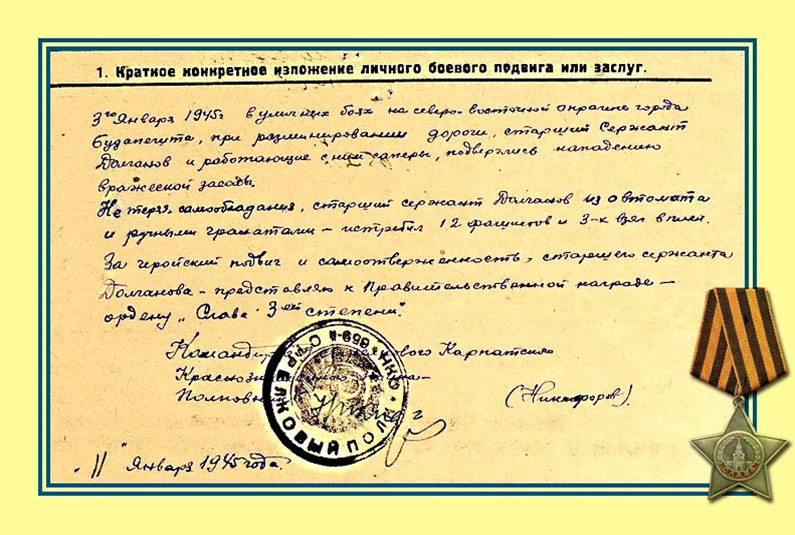 1. Краткое конкретное изложение личного боевого подвига или заслуг.
3го Января 1945г в уличных боях на северо-восточной окраине города
Будапешта, при разминировании дороги, старший Сержант
Долганов и работающие с ним саперы, подверглись нападению
вражеской засады.
Не теряя самообладания, старший сержант Долганов из автомата
и ручными гранатами – истребил 12 фашистов и 3-х взял в плен.
За геройский подвиг и самоотверженность, старшего сержанта
Долганова – представляю к Правительственной награде –
ордену „Слава 3ей степени".
Командир Карпатского
Краснознам
Полковник (Никифоров).
СТРЕЛКОВЫЙ ПОЛК
„11" Января 1945 года.
СЛАВА